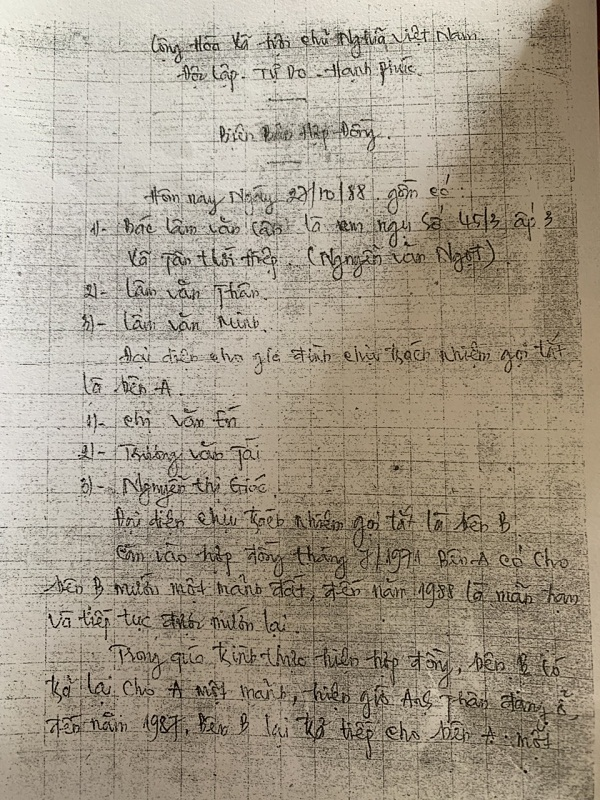 Cộng Hòa Xã Hội Chủ Nghĩa Việt Nam.
Độc Lập - Tự Do - Hạnh Phúc.
Biên Bản Hợp Đồng.
Hôm nay Ngày 27/10/88 gồm có
1)- Bác Lâm văn ngụ Số 45/3 ấp 3
Xã Tân thới Hiệp. (Nguyễn văn Ngọt)
2)- Lâm văn Thân.
3)- Lâm văn Minh.
Đại diện cho gia đình chịu trách nhiệm gọi tắt
là bên A.
1)- chị văn
2)- Trương văn Tái
3)- Nguyễn thị
Đại diện chịu trách nhiệm gọi tắt là bên B.
Căn vào hợp đồng tháng 7/1971 Bên A có cho
bên B mướn một mảnh đất, đến năm 1988 là mãn hạn
và tiếp tục mướn lại.
Trong quá trình thực hiện hợp đồng, bên B có
trả lại cho A một mảnh, hiện giờ Anh Thân đang ở,
đến năm 1987, Bên B lại trả tiếp cho bên A một